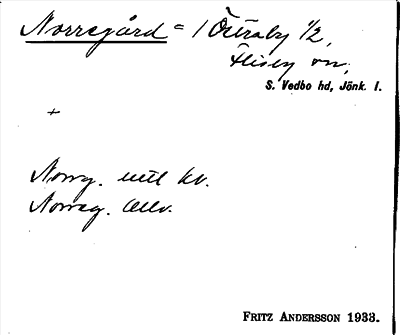 Norregård = 1 Överaby 1/2,
Flisby sn,
S. Vedbo hd, Jönk. l.
+
Norrg. uttl kv.
Norreg. Allv.
FRITZ ANDERSSON 1933.